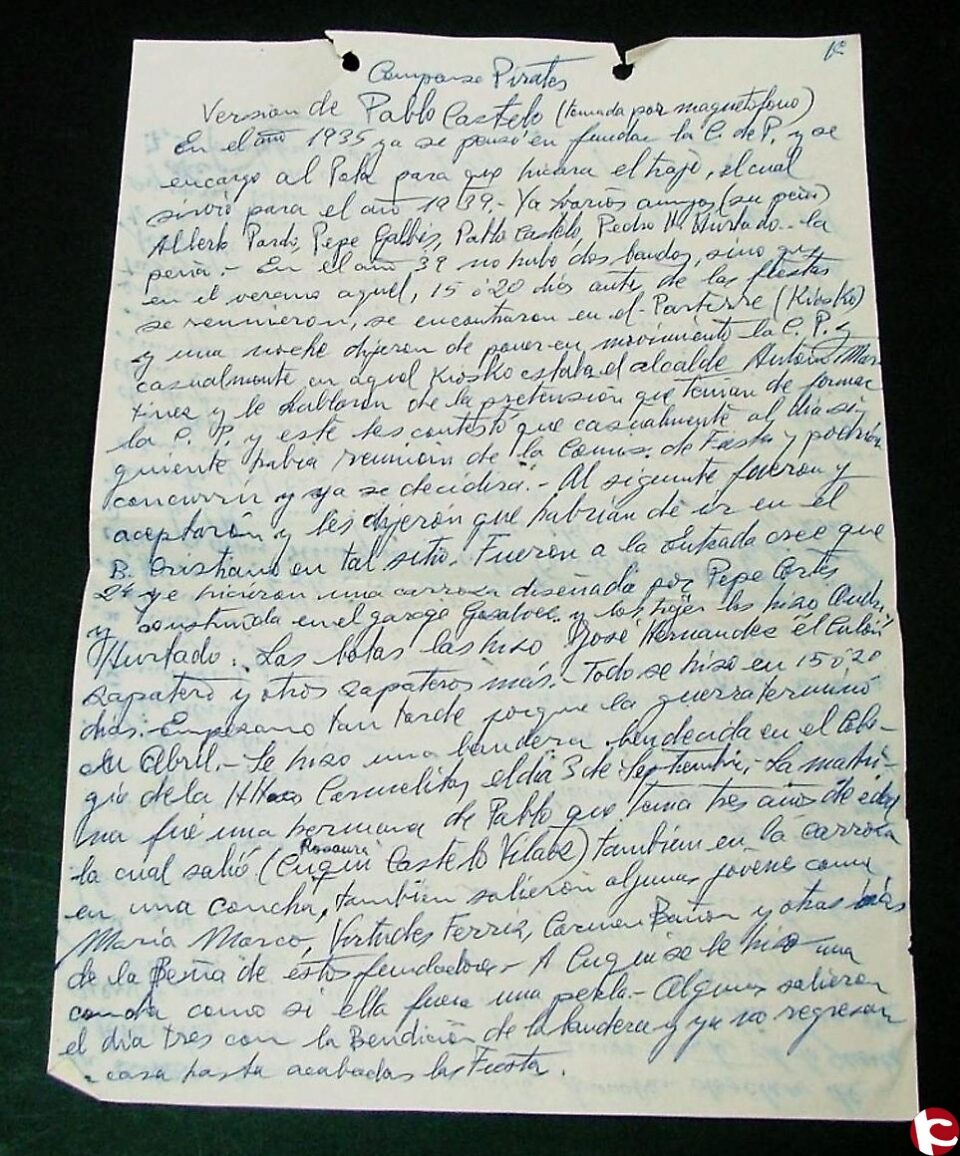 1º
Comparsa Piratas
Versión de Pablo Castelo (tomada por magnetofono)
En el año 1935 ya se pensó en fundar la C. de P. y se
encargo al Pola para que hiciera el traje, el cual
sirvió para el año 1939.- Ya varios amigos (su peña)
Alberto Pardo, Pepe Galbis, Pablo Castelo, Pedro M. Hurtado.. la
peña.- En el año 39 no hubo dos bandos, sino que
en el verano aquel, 15 ó 20 dias antes de las fiestas
se reunieron, se encontraron en el Parterre (Kiosko)
y una noche dijeron de poner en movimiento la C. P. y
casualmente en aquel Kiosko estaba el alcalde Antonio Mar
tinez y le hablaron de la pretensión que tenian de formar
la C. P. y este les contestó que casualmente al dia si
guiente habia reunión de la Comis. de Fiesta y podrian
concurrir y ya se decidira.- Al siguiente fueron y
aceptarón y les dijerón que habrian de ir en el
B. Cristiano en tal sitio. Fueron a la Entrada cree que
2ª y se hicieron una carroza diseñada por Pepe Cortés
y construida en el garage Gosalvez y los hizo
Hurtado. Las botas las hizo José Hernandez "el Culón"
zapatero y otros zapateros más.- Todo se hizo en 15 ó 20
dias.- Empezarno tan tarde porque la guerra terminó
en Abril.- Se hizo una bandera bendecida en el Cole-
gio de la HH Carmelitas, el dia 3 de Septiembre.- La madri-
na fué una hermana de Pablo que tenia tres años de edad
la cual salió (Cuqui Rosaura Castelo Vilabé) también en la carroza
en una concha, también salieron algunas jovenes como
Maria Marco, Virtudes Ferriz, Carmen Bañon y otras más
de la Peña de éstos fundadores - A Cuqui se le hizo una
concha como si ella fuera una perla.- Algunos salieron
el día tres con la Bendición de la bandera y ya no regresan
a casa hasta acabadas las Fiesta.